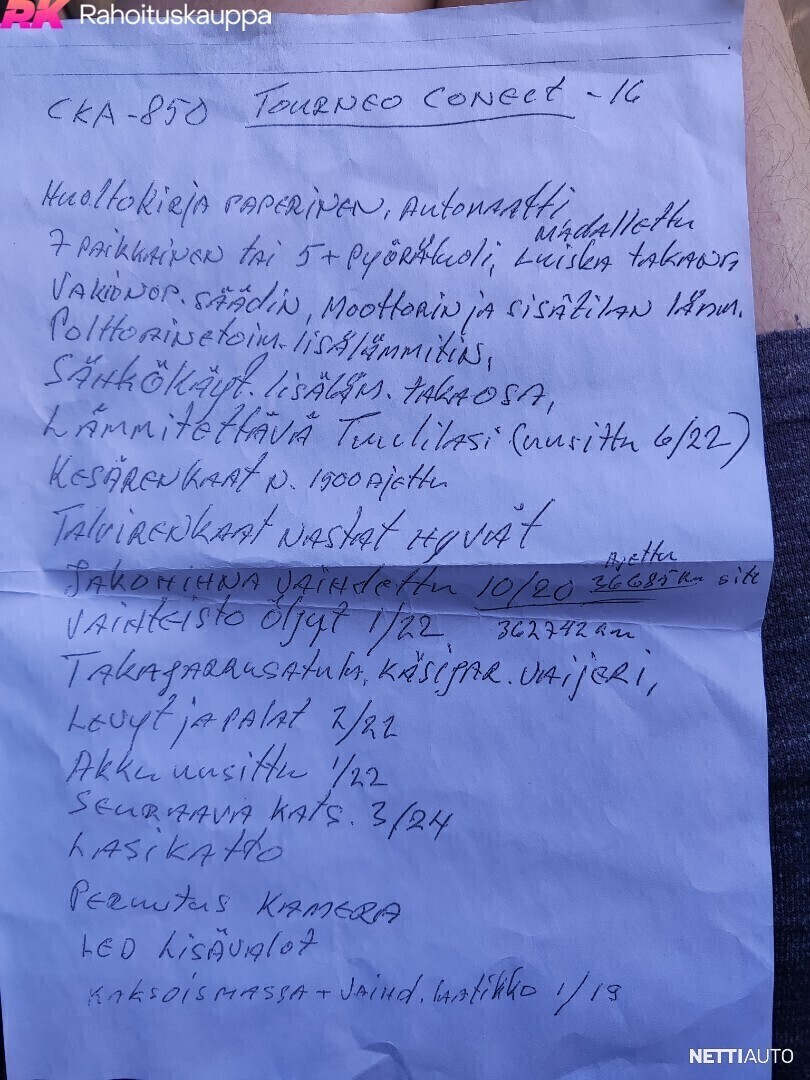 RK Rahoituskauppa
CKA-850 TOURNEO CONECT -16
Huoltokirja PAPERINEN, Automaatti
MADALLETTU
7 PAIKKAINEN tai 5 + PYÖRÄtuoli, Luiska takana,
VAKIONOP. SÄÄDIN, Moottorin ja sisätilan lämm.
Polttoainetoim. lisälämmitin,
SÄHKÖKÄYT. lisäläm. takaosa,
Lämmitettävä Tuulilasi (uusittu 6/22)
KESÄRENKAAT N. 1900 Ajettu
TALVIRENKAAT NASTAT HYVÄT
Ajettu
JAKOHIHNA VAIHDETTU 10/20 36685 km sitt
VAIHTEISTO ÖLJYT 1/22 362742 km
TAKAJARRUSATULA, KÄSIJAR. VAIJERI,
LEVYT JA PALAT 2/22
Akku uusittu 1/22
SEURAAVA KATS. 3/24
LASIKATTO
PERUUTUS KAMERA
LED LISÄVALOT
KAKSOISMASSA + VAIHD. LAATIKKO 1/19
NETTIAUTO